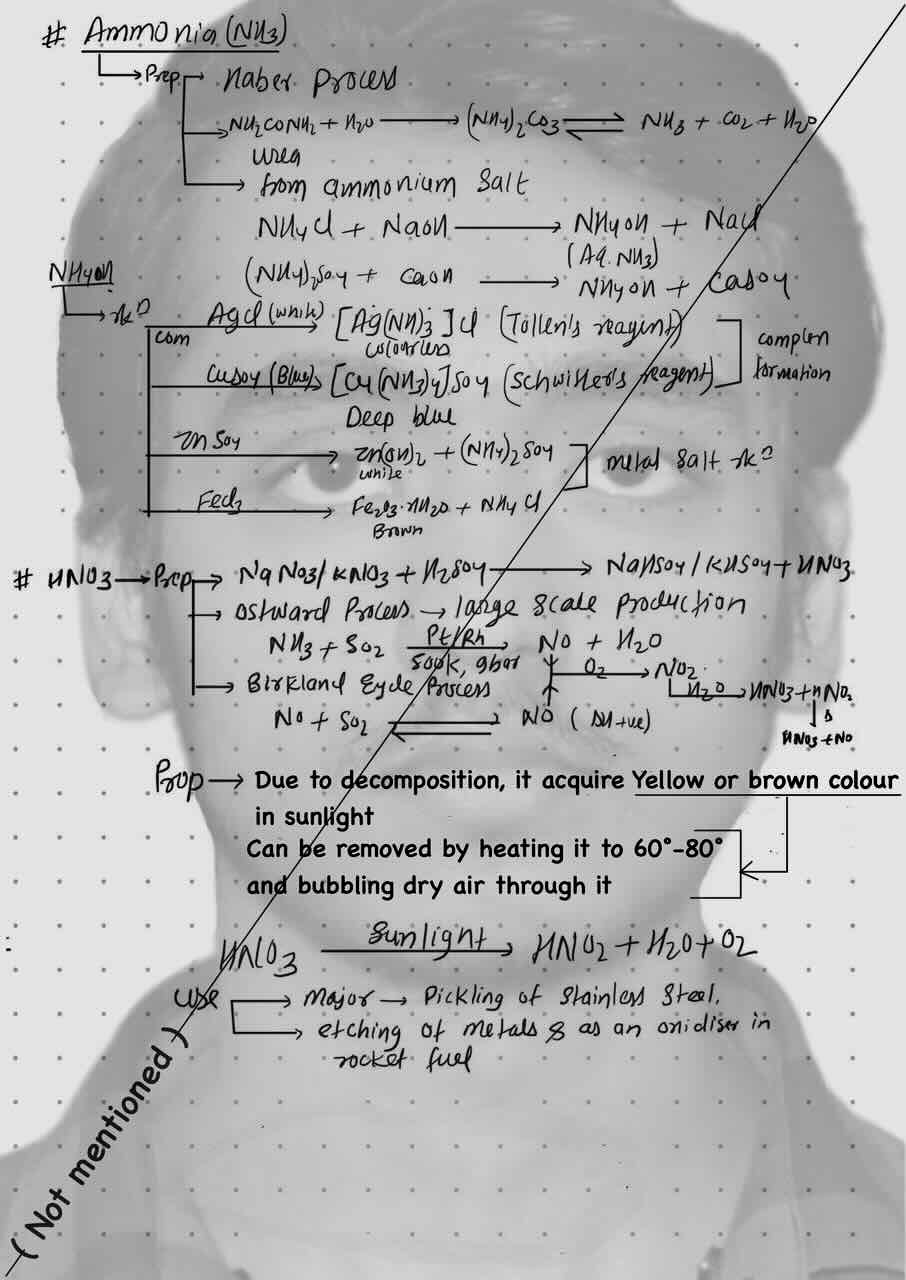 # Ammonia (NH3)
Prep → Haber process
NH2CONH2 + H2O → (NH4)2CO3 ⇌ NH3 + CO2 + H2O
Urea
from ammonium Salt
NH4Cl + NaOH → NH4OH + NaCl
(Aq. NH3)
(NH4)2SO4 + CaOH → NH4OH + CaSO4
NH4OH
rxn
com AgCl (white) → [Ag(NH)3]Cl (Tollen's reagent)
colourless
complex formation
CuSO4 (Blue) → [Cu(NH3)4]SO4 (Schwitter's reagent)
Deep blue
ZnSO4 → Zn(OH)2 + (NH4)2SO4
white
metal salt rxn
FeCl3 → Fe2O3·nH2O + NH4Cl
Brown
# HNO3 → Prep → NaNO3/KNO3 + H2SO4 → NaHSO4/KHSO4 + HNO3
→ Ostward Process → large scale production
NH3 + SO2 Pt/Rh → NO + H2O
500K, 9bar
O2 → NO2
H2O → HNO3 + HNO2
Δ
HNO3 + NO
→ Birkland Eycle Process
NO + SO2 ⇌ NO (ΔH +ve)
Prop → Due to decomposition, it acquire Yellow or brown colour
in sunlight
Can be removed by heating it to 60°-80°
and bubbling dry air through it
HNO3 Sunlight → HNO2 + H2O + O2
Use → Major → Pickling of Stainless Steel,
→ etching of metals & as an oxidiser in
rocket fuel
(Not mentioned)